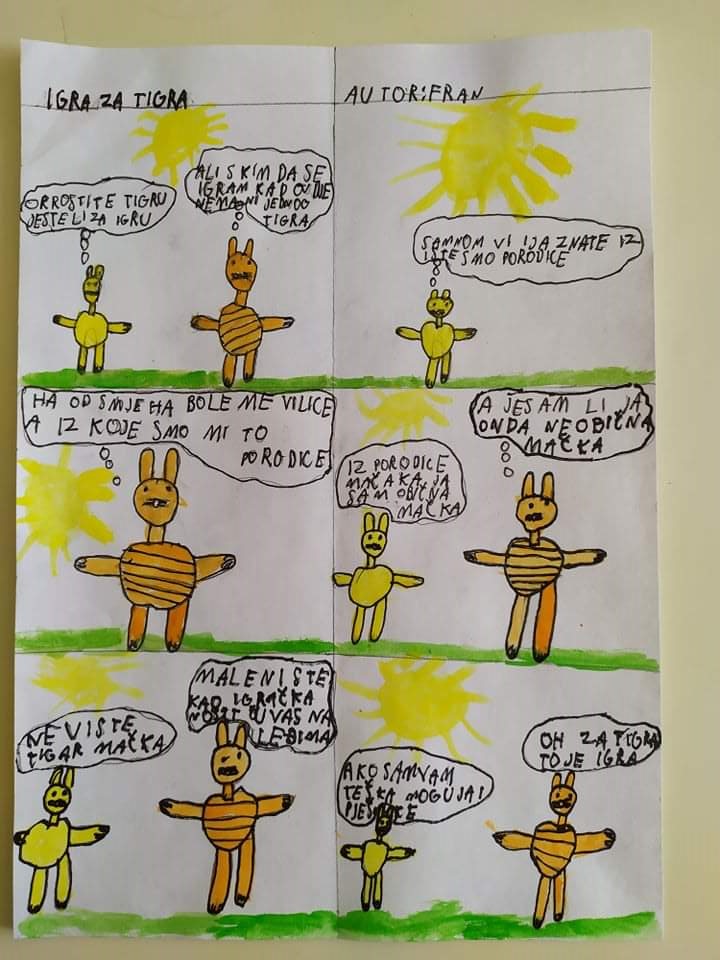 IGRA ZA TIGRA
AUTOR:FRAN
OPROSTITE TIGRU
JESTE LI ZA IGRU
ALI S KIM DA SE
IGRAM KAD OVDJE
NEMA NI JEDNOG
TIGRA
SAMNOM VI IJA ZNATE IZ
ISTE SMO PORODICE
HA OD SMJEHA BOLE ME VILICE
A IZ KOJE SMO MI TO
PORODICE
IZ PORODICE
MAČAKA JA
SAM OBIČNA
MAČKA
A JESAM LI JA
ONDA NEOBIČNA
MAČKA
NE VI STE
TIGAR MAČKA
MALENI STE
KAO IGRAČKA
NOSIT ĆU VAS NA
LEĐIMA
AKO SAM VAM
TEŠKA MOGU JA I
PJEŠICE
OH ZA TIGRA
TO JE IGRA